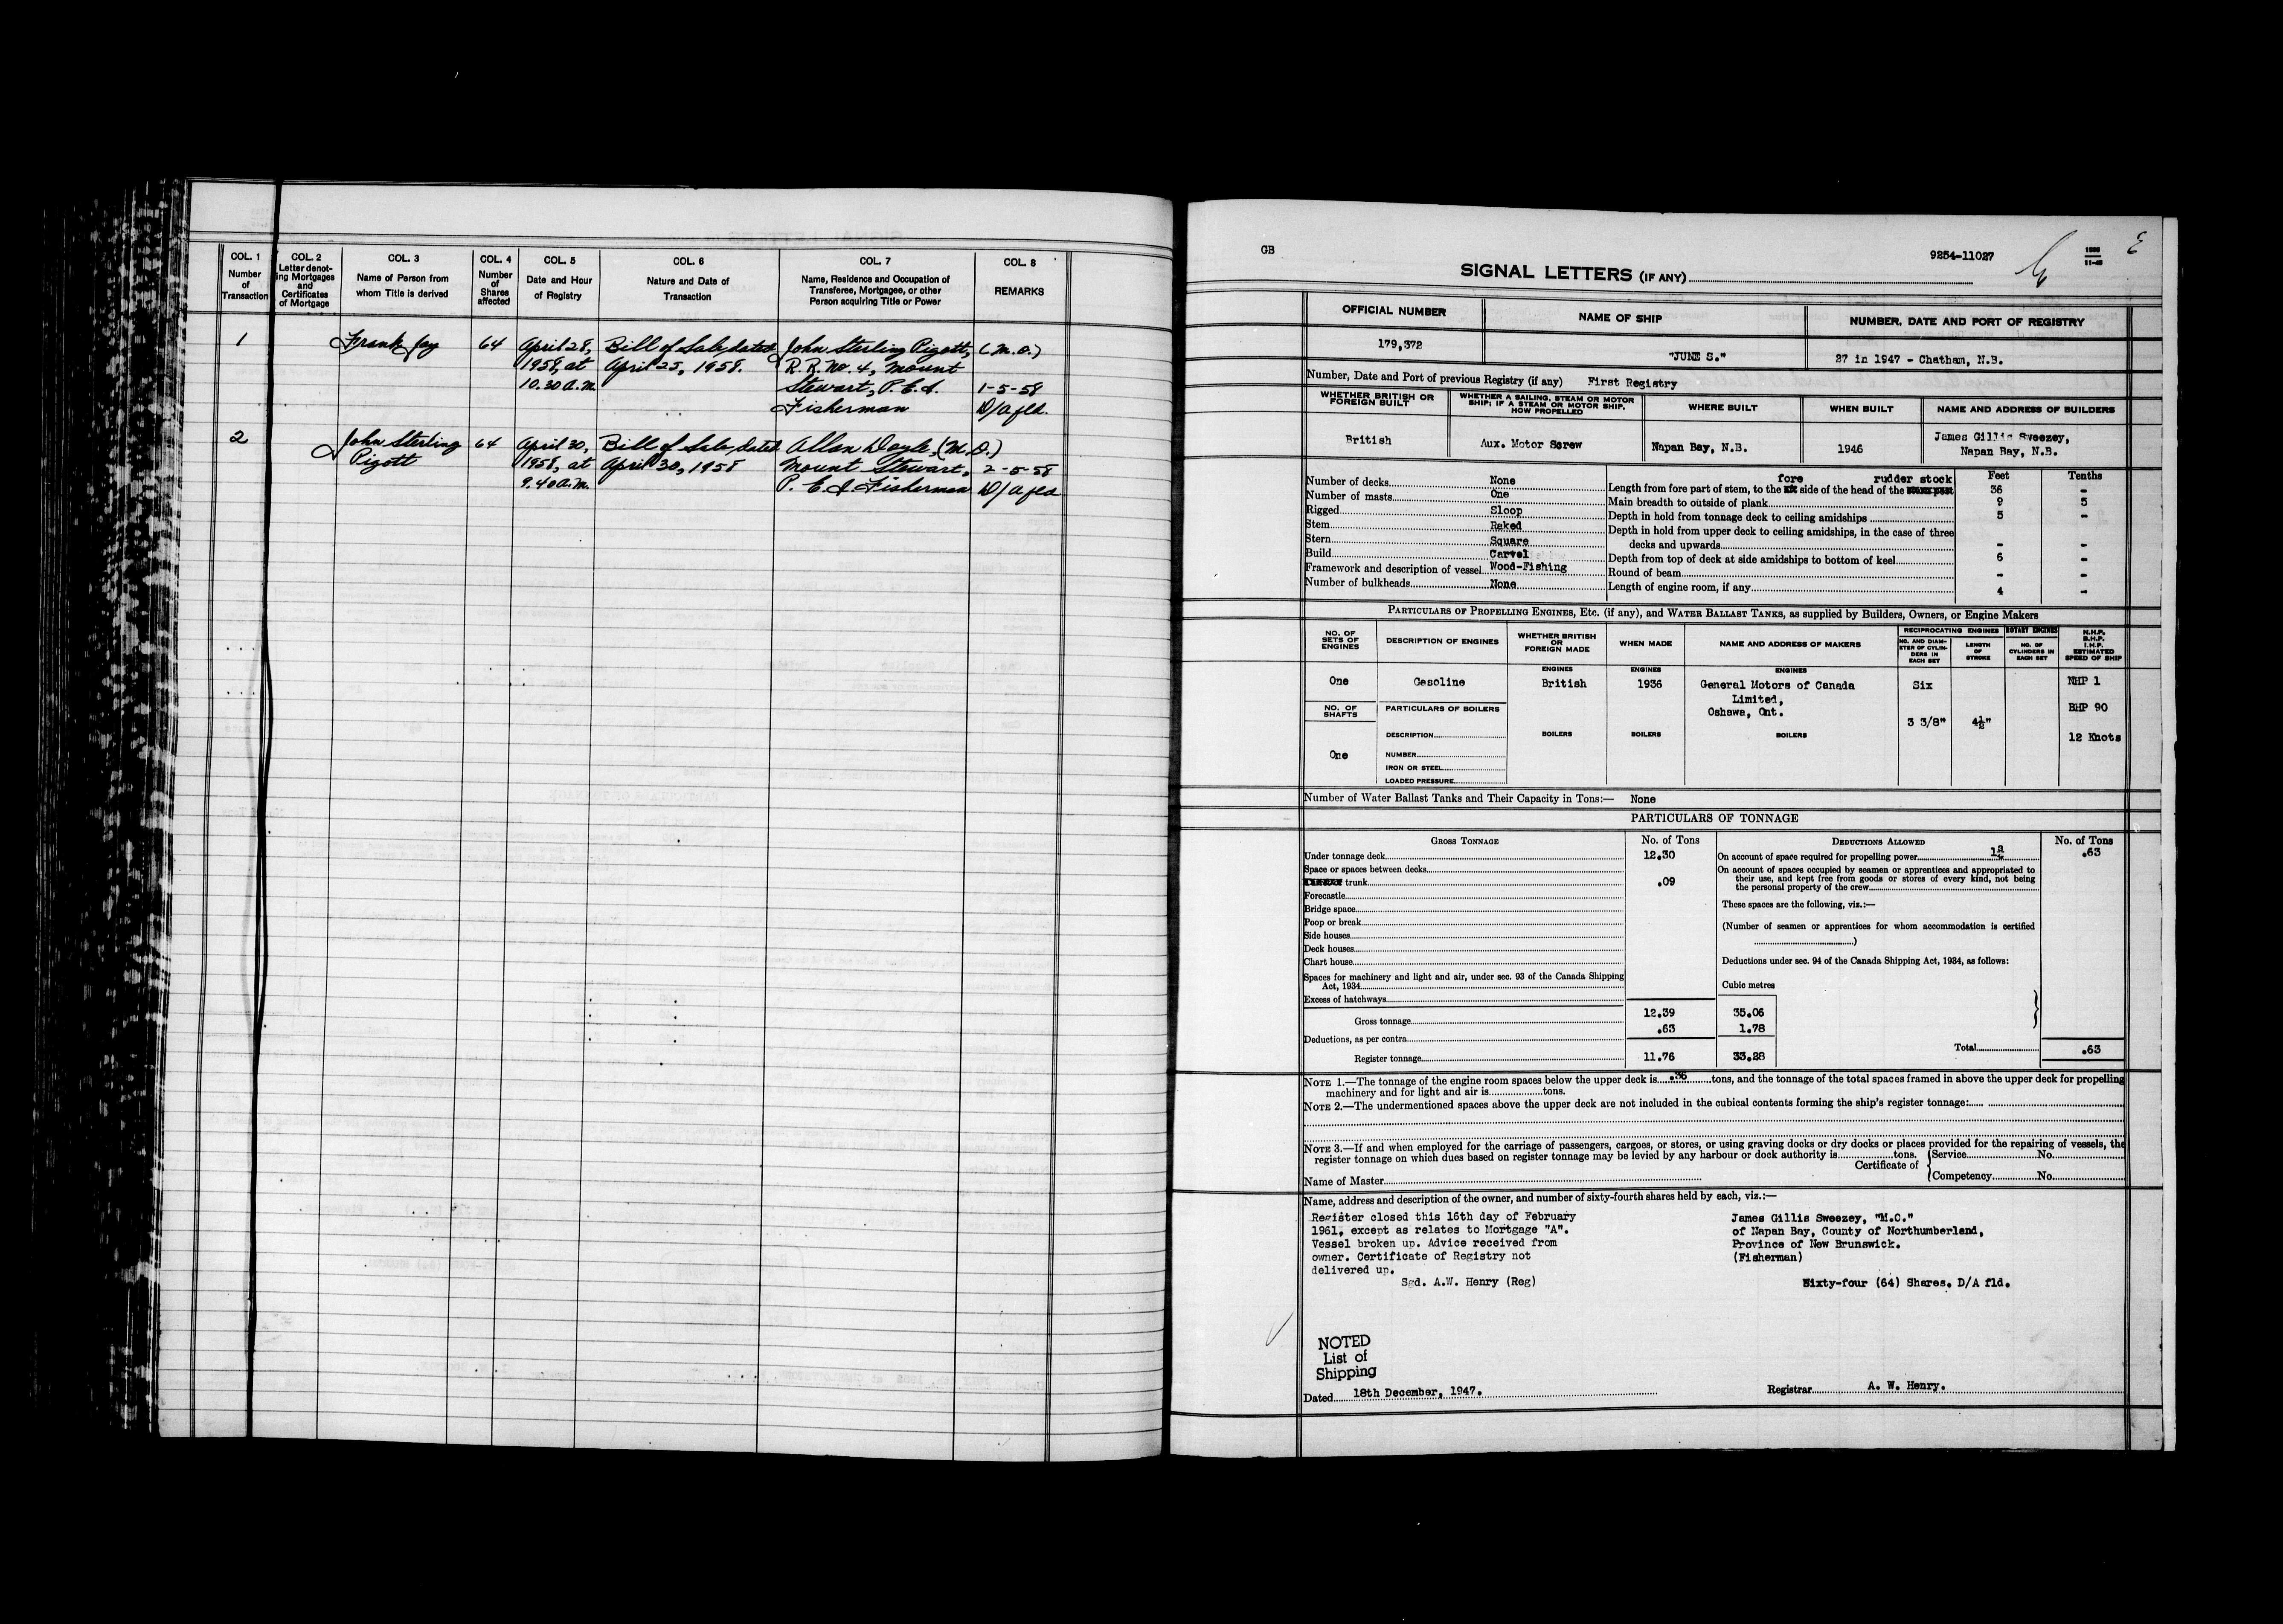 COL. 1 COL. 2 COL. 3 COL. 4 COL. 5 COL. 6 COL. 7 COL. 8
Number of Transaction
Letter denoting Mortgages and Certificates of Mortgage
Name of Person from whom Title is derived
Number of Shares affected
Date and Hour of Registry
Nature and Date of Transaction
Name, Residence and Occupation of Transferee, Mortgagee, or other Person acquiring Title or Power
REMARKS
1 Frank Jay 64 April 28, Bill of Sale, dated John Sterling Pigott, (M.O.)
1958, at April 25, 1958. R. R. No. 4, Mount
10.30 A.M. Stewart, P.E.I. 1-5-58
Fisherman D/A fld.
2 John Sterling 64 April 30, Bill of Sale, dated Allan Doyle, (M.O.)
Pigott 1958, at April 30, 1958 Mount Stewart, 2-5-58
9.40 A.M. P.E.I. Fisherman D/A fld
GB
9254-11027
SIGNAL LETTERS (IF ANY)
OFFICIAL NUMBER NAME OF SHIP NUMBER, DATE AND PORT OF REGISTRY
179,372 "JUNE S." 27 in 1947 - Chatham, N.B.
Number, Date and Port of previous Registry (if any) First Registry
WHETHER BRITISH OR FOREIGN BUILT
WHETHER A SAILING, STEAM OR MOTOR SHIP; IF A STEAM OR MOTOR SHIP, HOW PROPELLED
WHERE BUILT
WHEN BUILT
NAME AND ADDRESS OF BUILDERS
British Aux. Motor Screw Napan Bay, N.B. 1946 James Gillis Sweezey,
Napan Bay, N.B.
Feet Tenths
Number of decks None
Number of masts One
Rigged Sloop
Stem Raked
Stern Square
Build Carvel
Framework and description of vessel Wood-Fishing
Number of bulkheads None
fore rudder stock
Length from fore part of stem, to the side of the head of the 36 -
Main breadth to outside of plank 9 5
Depth in hold from tonnage deck to ceiling amidships 5 -
Depth in hold from upper deck to ceiling amidships, in the case of three
decks and upwards - -
Depth from top of deck at side amidships to bottom of keel 6 -
Round of beam - -
Length of engine room, if any 4 -
PARTICULARS OF PROPELLING ENGINES, ETC. (if any), and WATER BALLAST TANKS, as supplied by Builders, Owners, or Engine Makers
NO. OF SETS OF ENGINES
DESCRIPTION OF ENGINES
WHETHER BRITISH OR FOREIGN MADE
WHEN MADE
NAME AND ADDRESS OF MAKERS
RECIPROCATING ENGINES ROTARY ENGINES
NO. AND DIAMETER OF CYLINDERS IN EACH SET
LENGTH OF STROKE
NO. OF CYLINDERS IN EACH SET
N.H.P. B.H.P. I.H.P. ESTIMATED SPEED OF SHIP
ENGINES ENGINES ENGINES
One Gasoline British 1936 General Motors of Canada Six NHP 1
Limited,
Oshawa, Ont. 3 3/8" 4½" BHP 90
NO. OF SHAFTS PARTICULARS OF BOILERS
DESCRIPTION BOILERS BOILERS BOILERS 12 Knots
One NUMBER
IRON OR STEEL
LOADED PRESSURE
Number of Water Ballast Tanks and Their Capacity in Tons:— None
PARTICULARS OF TONNAGE
GROSS TONNAGE No. of Tons DEDUCTIONS ALLOWED No. of Tons
Under tonnage deck 12.30
Space or spaces between decks
trunk .09
Forecastle
Bridge space
Poop or break
Side houses
Deck houses
Chart house
Spaces for machinery and light and air, under sec. 93 of the Canada Shipping
Act, 1934
Excess of hatchways
Gross tonnage 12.39 35.06
Deductions, as per contra .63 1.78
Register tonnage 11.76 33.28
On account of space required for propelling power .63
On account of spaces occupied by seamen or apprentices and appropriated to
their use, and kept free from goods or stores of every kind, not being
the personal property of the crew
These spaces are the following, viz.:—
(Number of seamen or apprentices for whom accommodation is certified
)
Deductions under sec. 94 of the Canada Shipping Act, 1934, as follows:
Cubic metres
Total .63
NOTE 1.—The tonnage of the engine room spaces below the upper deck is .36 tons, and the tonnage of the total spaces framed in above the upper deck for propelling
machinery and for light and air is tons.
NOTE 2.—The undermentioned spaces above the upper deck are not included in the cubical contents forming the ship's register tonnage:
NOTE 3.—If and when employed for the carriage of passengers, cargoes, or stores, or using graving docks or dry docks or places provided for the repairing of vessels, the
register tonnage on which dues based on register tonnage may be levied by any harbour or dock authority is tons.
Name of Master Certificate of Service No.
Competency No.
Name, address and description of the owner, and number of sixty-fourth shares held by each, viz.:—
Register closed this 16th day of February
1961, except as relates to Mortgage "A".
Vessel broken up. Advice received from
owner. Certificate of Registry not
delivered up.
Sgd. A.W. Henry (Reg)
James Gillis Sweezey, "M.O."
of Napan Bay, County of Northumberland,
Province of New Brunswick.
(Fisherman)
Sixty-four (64) Shares. D/A fld.
NOTED
List of
Shipping
Dated 18th December, 1947. Registrar A. W. Henry.